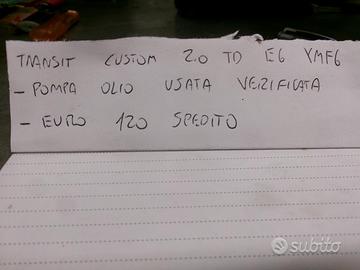 TRANSIT CUSTOM 2.0 TD E6 YMF6
- POMPA OLIO USATA VERIFICATA
- EURO 120 SPEDITO
subito